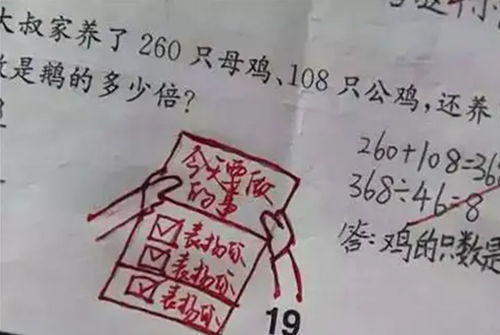 大叔家养了260只母鸡、108只公鸡，还养
是鹅的多少倍？
260+108=36
368÷46=8
答：鸡的只数是
今天要做
的事
表扬你
表扬你
表扬你
19